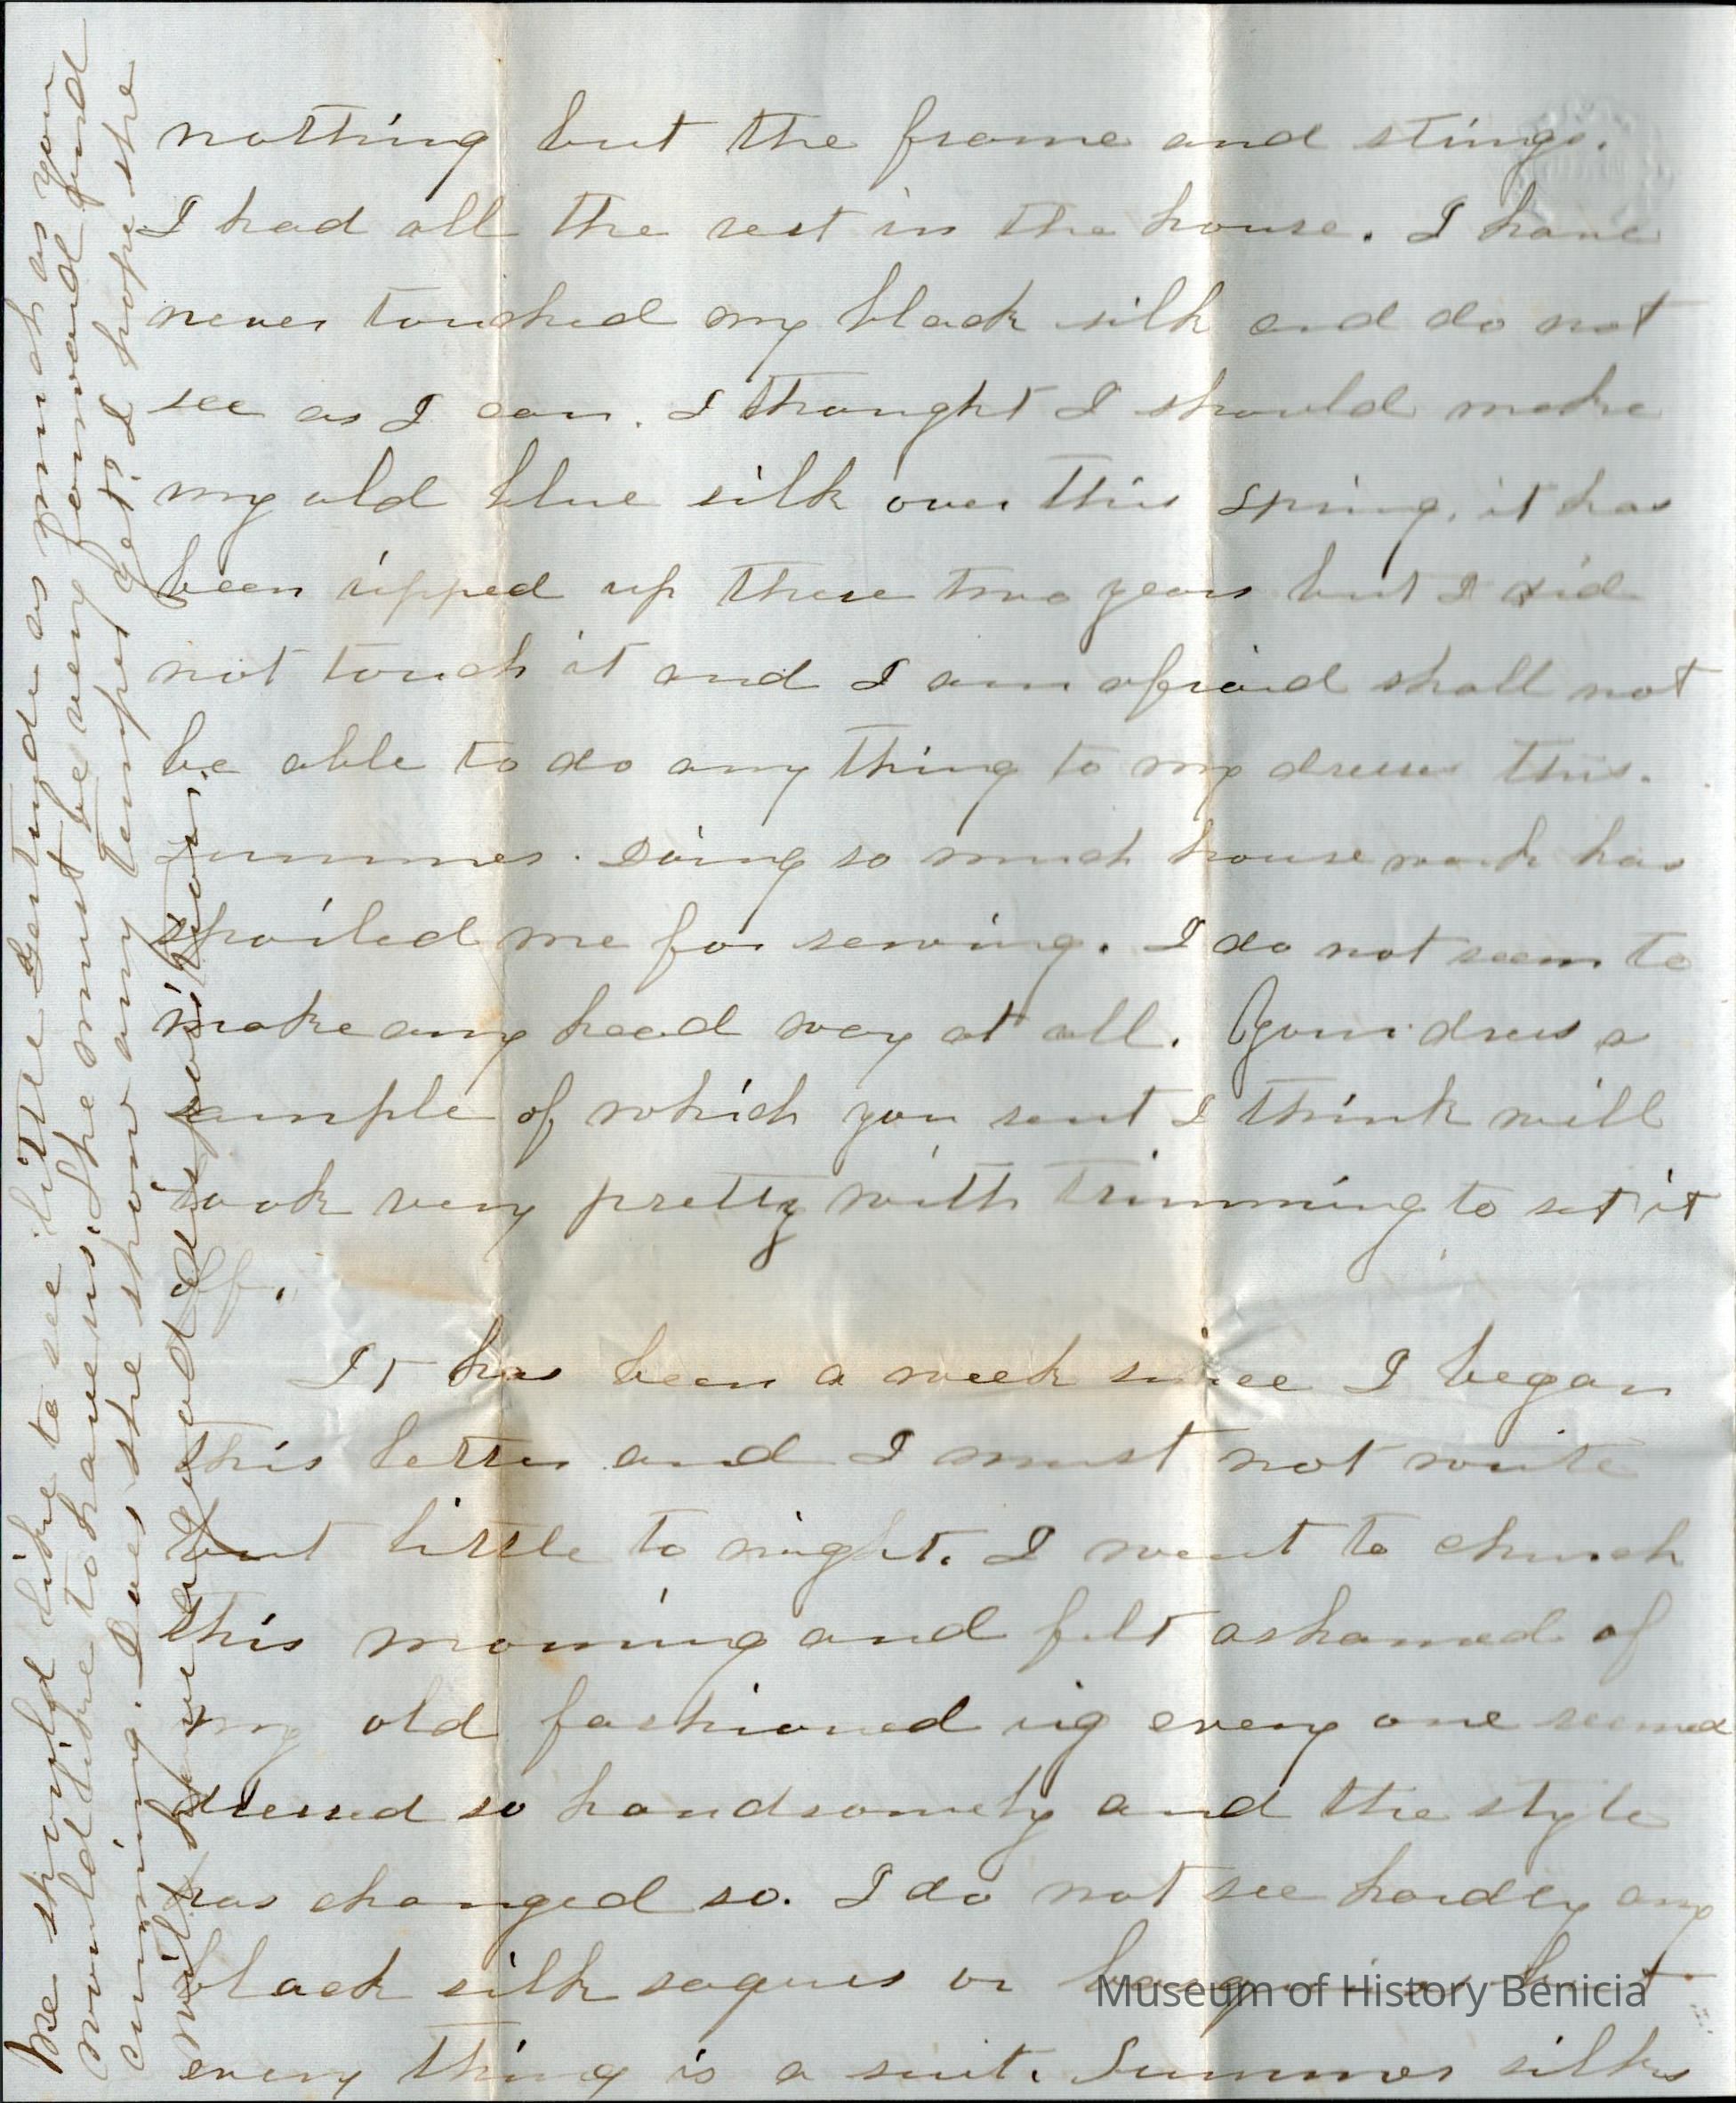 nothing but the frame and stings.
I had all the rest in the house. I have
never touched my black silk and do not
see as I can. I thought I should make
my old blue silk over this spring, it has
been ripped up these two years but I did
not touch it and I am afraid shall not
be able to do any thing to my dresses this
summer. Doing so much house work has
spoiled me for sewing. I do not seem to
make any head way at all. Your dress a
sample of which you sent I think will
look very pretty with trimming to set it
off.
It has been a week since I began
this letter and I must not write
but little to night. I went to church
this morning and felt ashamed of
my old fashioned rig every one seemed
dressed so handsomely and the style
has changed so. I do not see hardly any
black silk saques or but
every thing is a suit. Summer silks
We should like to see little Gertrude as much as you
would like to have us. She must be very forward and
cunning. Does she show any temper yet? I hope she
will have a good disposition.
Museum of History Benicia